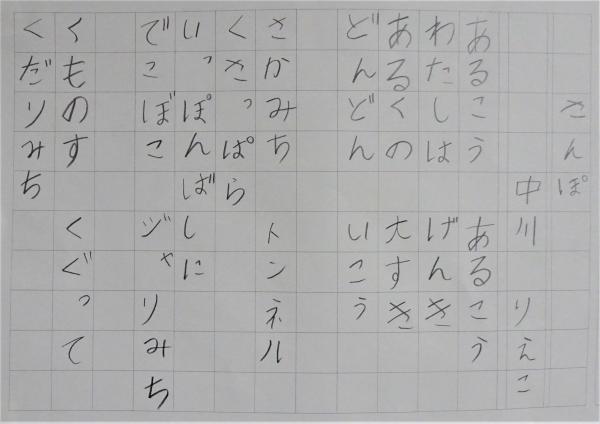 さんぽ
中川 りえこ
あるこう あるこう
わたしは げんき
あるくの 大すき
どんどん いこう
さかみち トンネル
くさっぱら
いっぽんばしに
でこぼこ ジャリみち
くものす くぐって
くだりみち